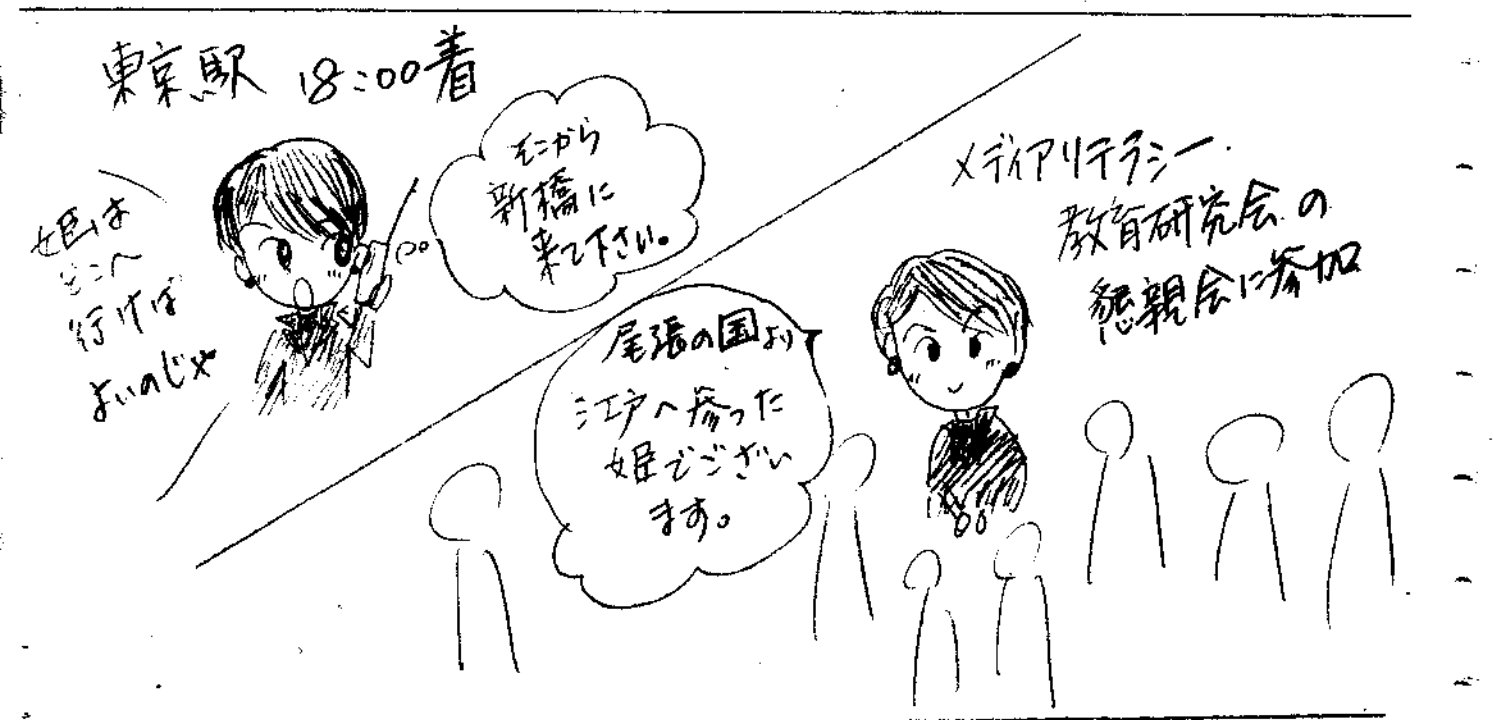 東京駅 18:00着
姫は
どこへ
行けば
よいのじゃ
そこから
新橋に
来て下さい。
メディアリテラシー
教育研究会の
懇親会に参加
尾張の国より
江戸へ参った
姫でござい
ます。